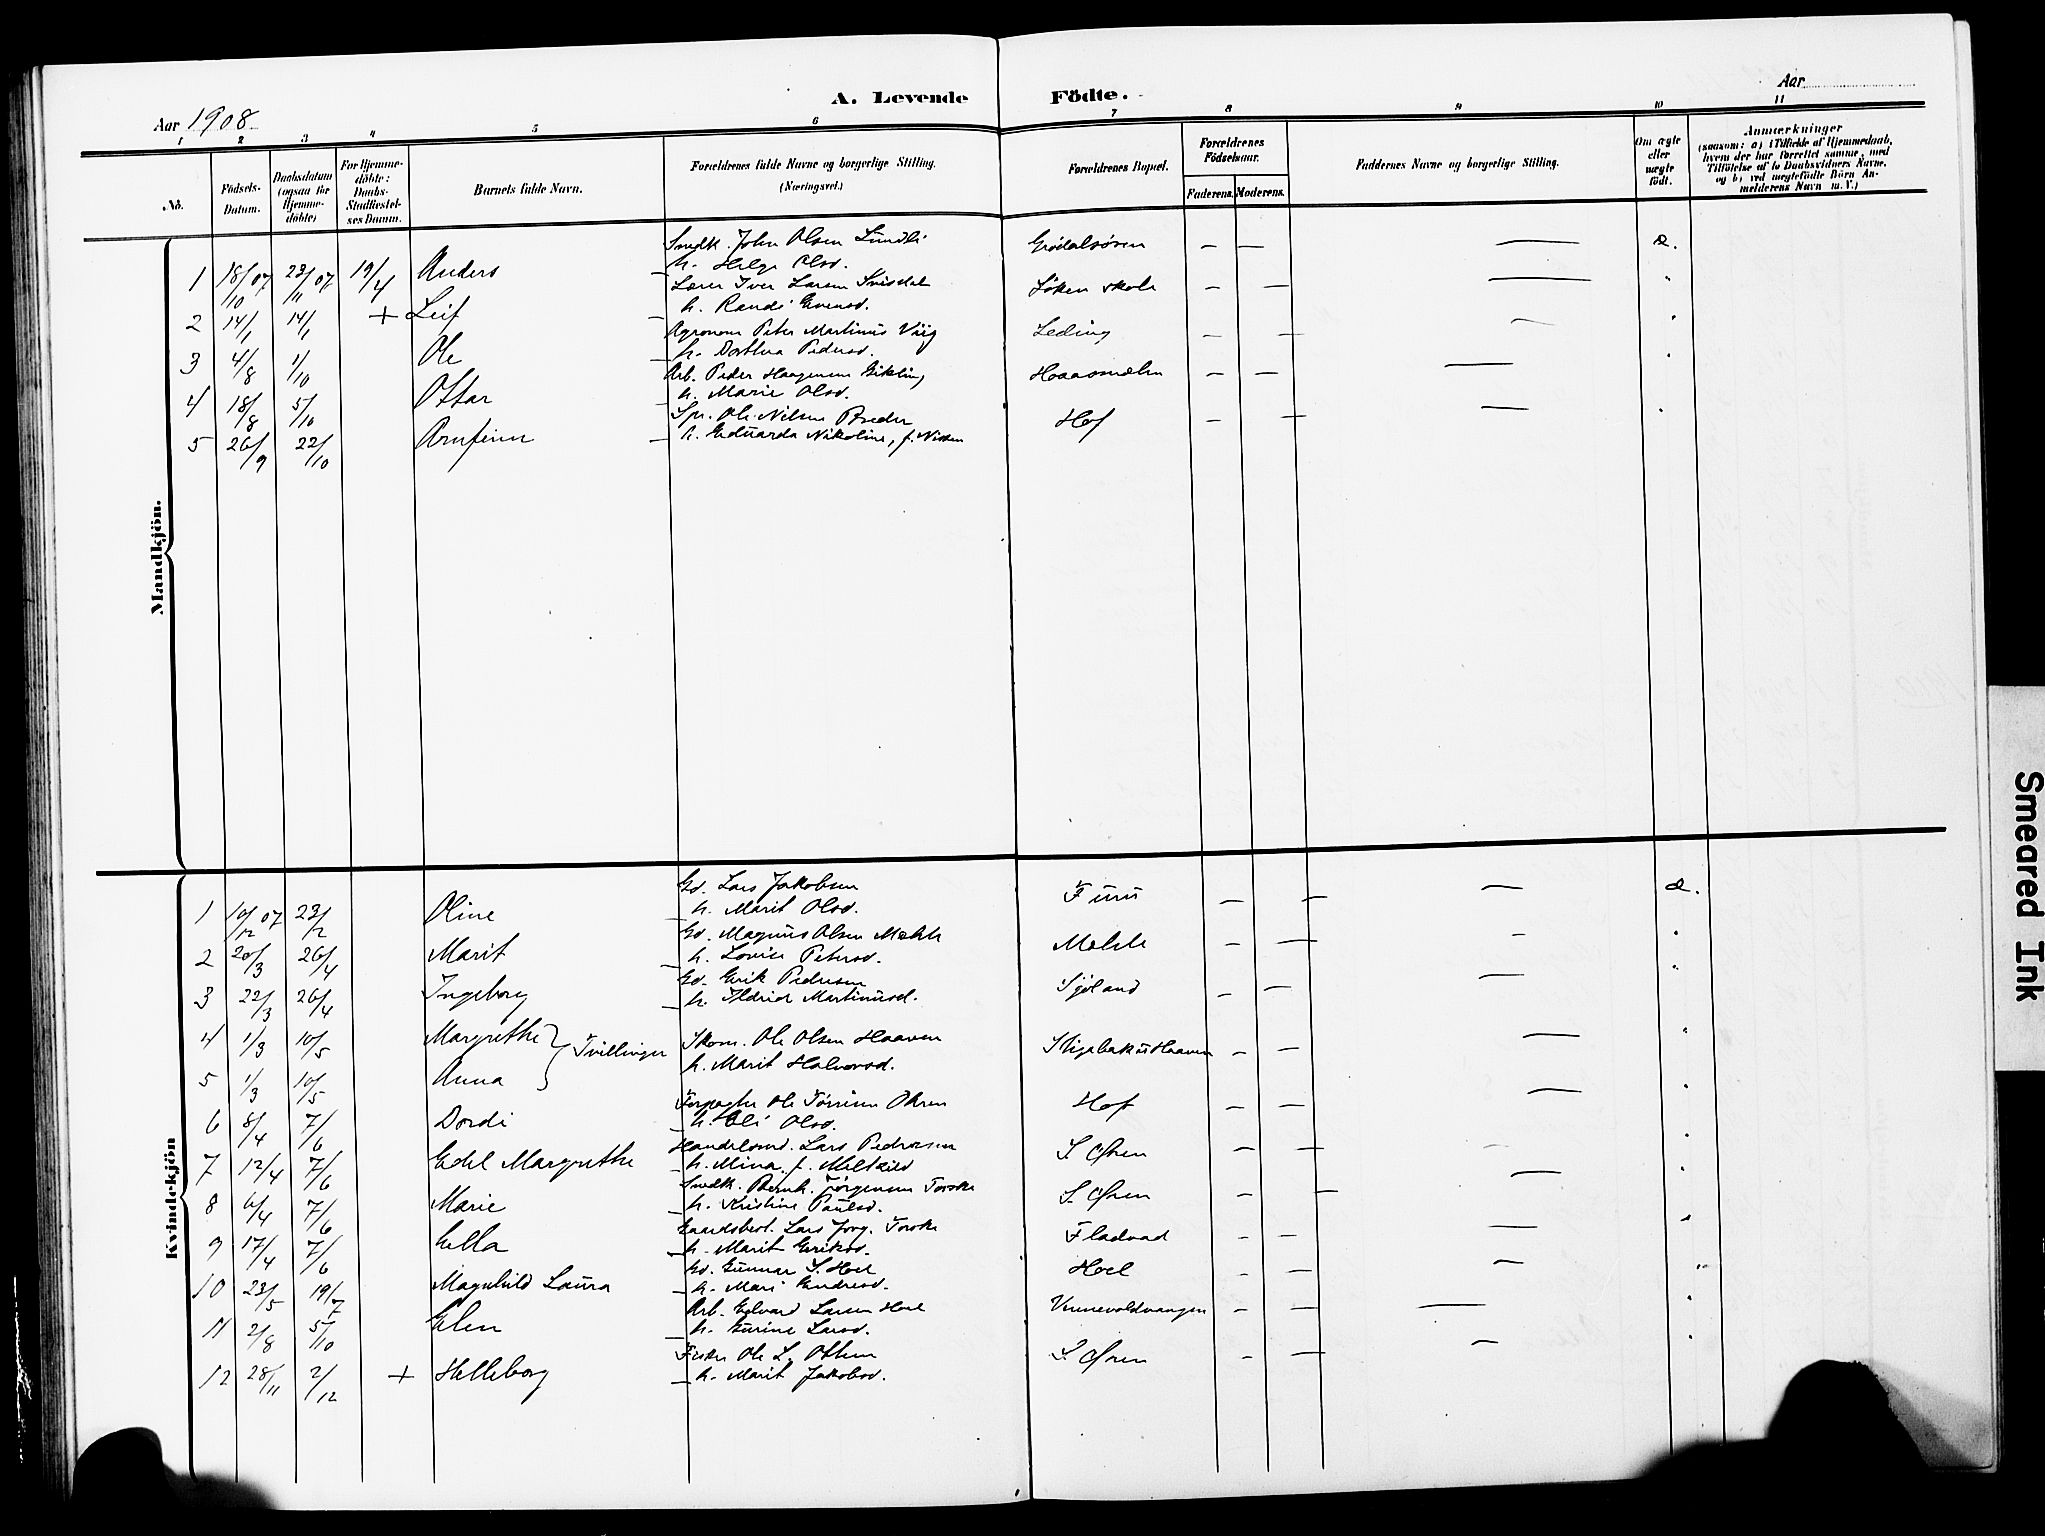 A. Levende Födte.
Aar 1908
Aar
1 2 3 4 5 6 7 8 9 10 11
No.
Födsels-Datum.
Daabsdatum (ogsaa for Hjemme-döbte)
For Hjemme-döbte: Daabs-Stadfæstel-ses Datum.
Barnets fulde Navn.
Forældrenes fulde Navne og borgerlige Stilling. (Næringsvei.)
Forældrenes Bopæl.
Forældrenes Födselsaar.
Faderens. Moderens.
Faddernes Navne og borgerlige Stilling.
Om ægte eller uægte födt.
Anmærkninger
(saasom: a) i Tilfælde af Hjemmedaab, hvem der har forrettet samme, med Tilföielse af to Daabsvidners Navne, og b) ved uægtefödte Börn An-melderens Navn m. V.)
Mandkjön.
1 18/10 07 23/11 07 19/4 Anders Smedk. John Olsen Lundli Grödalsören — — — æ.
— h. Helge Olsd.
2 14/1 14/1 + Leif Lærer Iver Larsen Svisdal Löken skole — — — "
— h. Randi Evensd.
3 4/8 1/10 Ole Agronom Peter Martinus Viig Leding — — — "
— h. Dorthea Pedersd.
4 18/8 5/10 Ottar Arb. Peder Haagensen Gikling — — — "
— h. Marie Olsd.
5 26/9 22/10 Arnfinn Spr. Ole Nilsen Hof — — — "
— h. Eduarda Nikoline, f. Nissen
Kvindekjön
1 10/12 07 23/2 Oline Gd. Lars Jakobsen Furu — — — æ.
— h. Marit Olsd.
2 20/3 26/4 Marit Gd. Magnus Olsen Mæhle Mæhle — — — "
— h. Lovise Petersd.
3 22/3 26/4 Ingeborg Gd. Erik Pedersen Sjöland — — — "
— h. Ildrid Martinusd.
4 1/3 10/5 Margrethe } Tvillinger Skom. Ole Olsen Haaven — — — "
5 1/3 10/5 Anna h. Marit Halvorsd.
6 8/4 7/6 Dordi Forpagter Ole Törrisen Ohren Hof — — — "
— h. Eli Olsd.
7 12/4 7/6 Edel Margrethe Handelsmd. Lars Pedersen S. Øren — — — "
— h. Mina f.
8 6/4 7/6 Marie Smedk. Bernh. Jörgensen Torske S. Øren — — — "
— h. Kristine Paulsd.
9 17/4 7/6 Ella Gaardsbest. Lars Jörg. Torske Fladvad — — — "
— h. Marit Eriksd.
10 23/5 19/7 Magnhild Laura Gd. Gunnar S. Hoel Hoel — — — "
— h. Mari Endresd.
11 2/8 5/10 Elen Arb. Edvard Larsen Hoel Vennevoldvangen — — — "
— h. Gurine Larsd.
12 28/11 2/12 + Helleborg Fisker Ole L. Ottem S. Øren — — — "
— h. Marit Jakobsd.
Smeared Ink